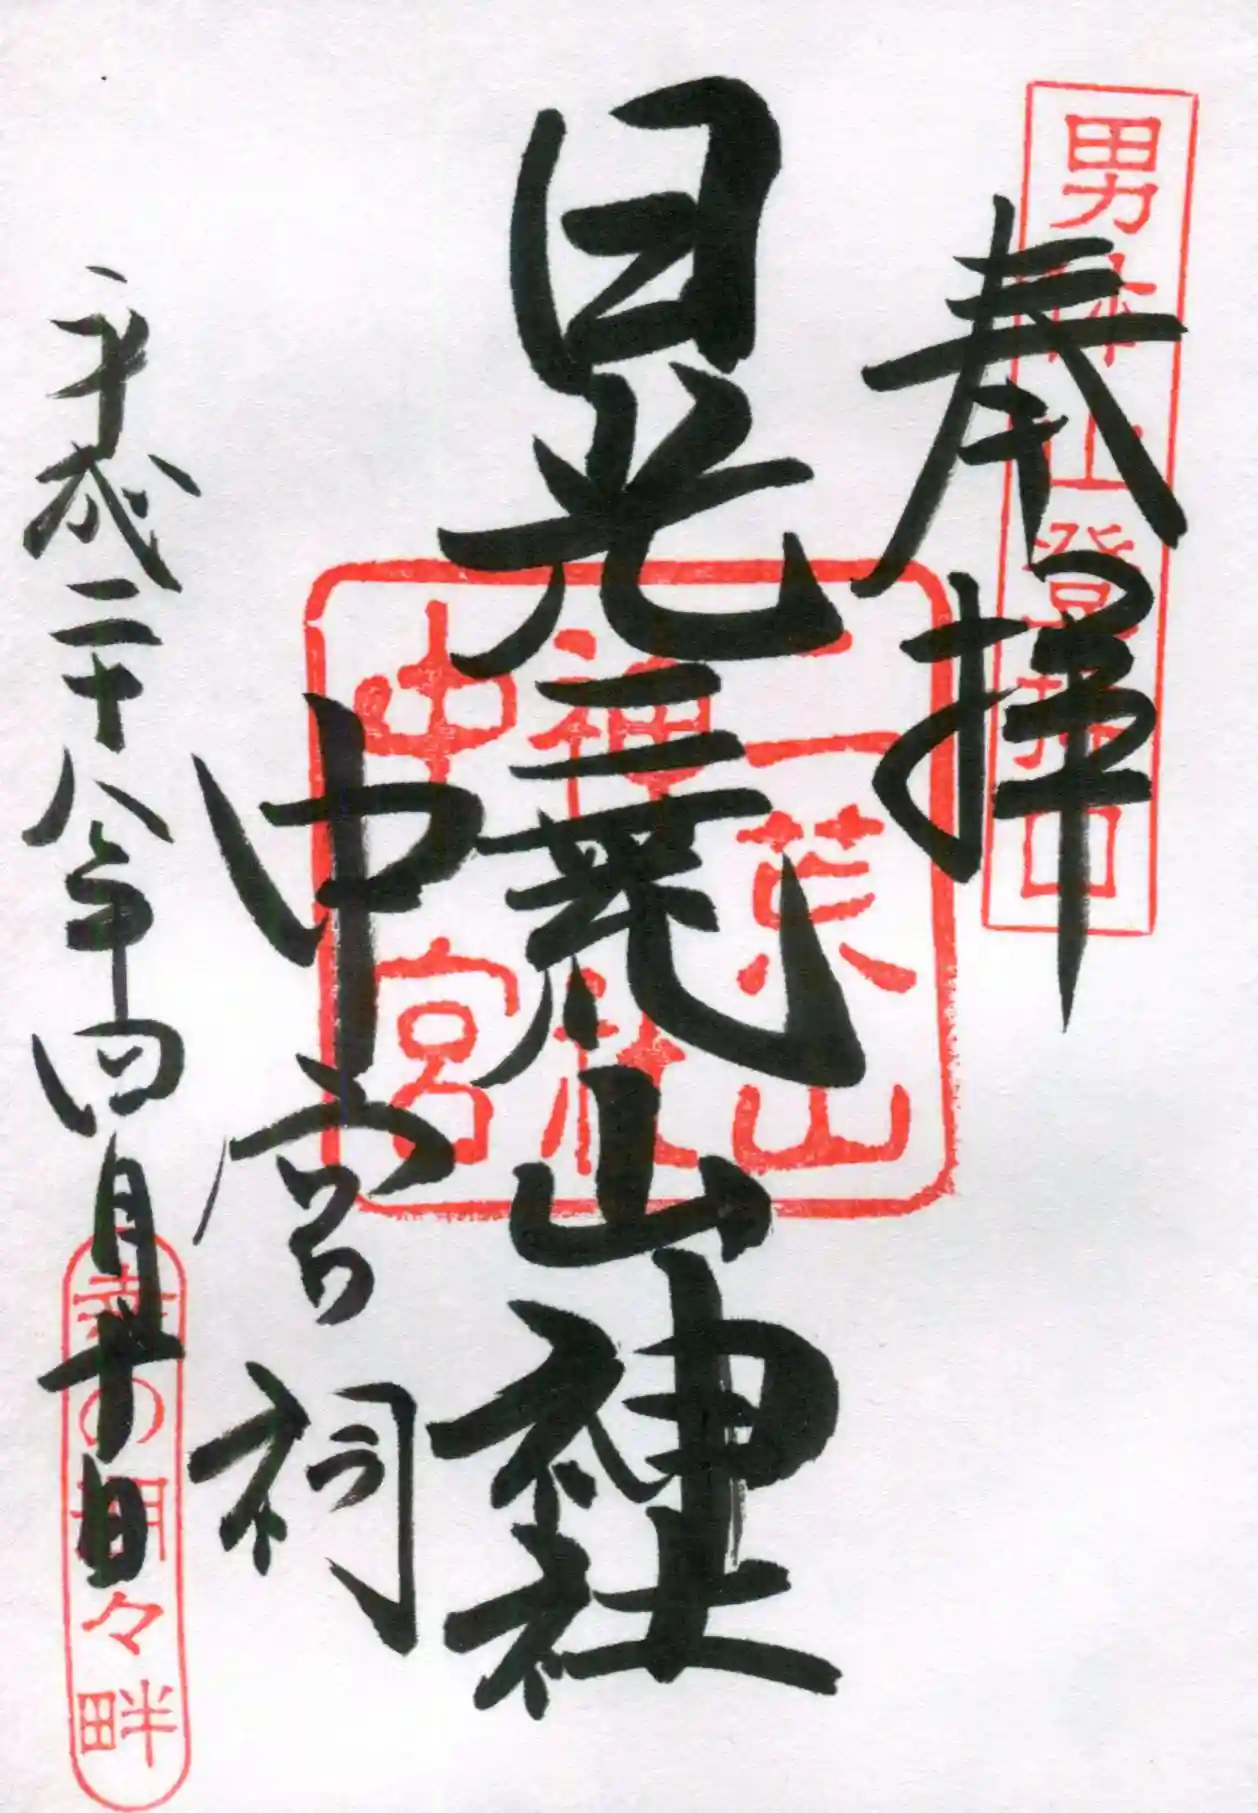 男体山登拝口
奉拝
日光二荒山神社
中宮祠
二荒山
神社
中宮
平成二十八年四月十日
幸の湖々畔